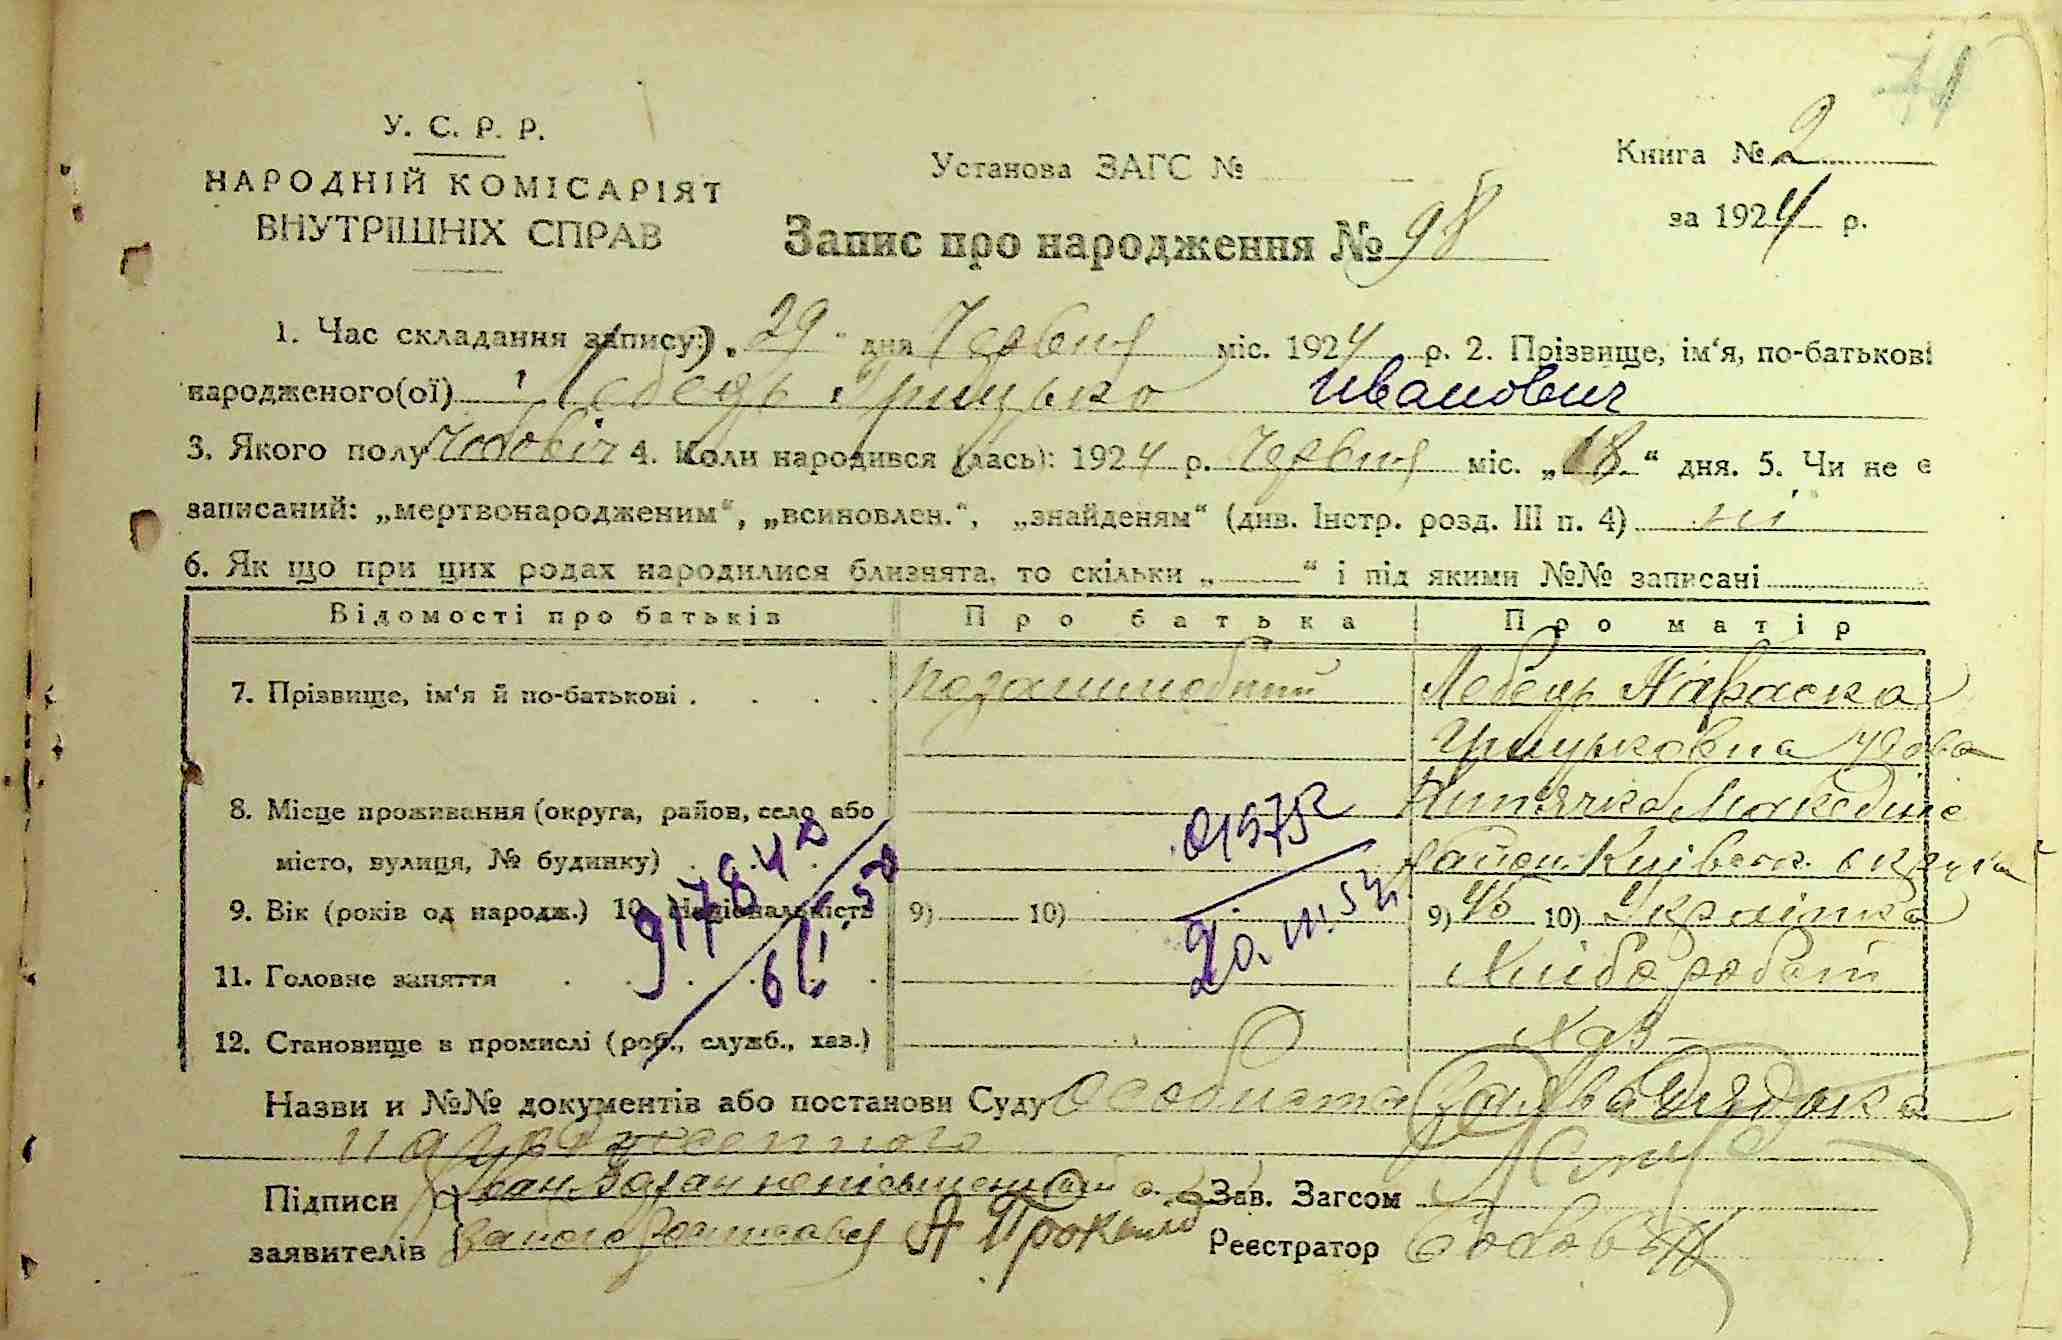 71
У. С. Р. Р.
НАРОДНІЙ КОМІСАРІЯТ
ВНУТРІШНІХ СПРАВ
Установа ЗАГС №
Книга № 2
за 1924 р.
Запис про народження № 98
1. Час складання запису: „29“ дня Червня міс. 1924 р. 2. Прізвище, ім‘я, по-батькові
народженого(ої) Лебедь Грицько Иванович
3. Якого полу Чоловіч 4. Коли народився (лась): 1924 р. Червня міс. „18“ дня. 5. Чи не є
записаний: „мертвонародженим“, „всиновлен.“, „знайденям“ (див. Інстр. розд. III п. 4) ні
6. Як що при цих родах народилися близнята, то скільки „ “ і під якими №№ записані
Відомості про батьків Про батька Про матір
7. Прізвище, ім‘я й по-батькові . . . . позашлюбний Лебедь Параска
Грицьковна удова
8. Місце проживання (округа, район, село або
місто, вулиця, № будинку) район Київськ. округи
9. Вік (років од народж.) 10. Національність 9) 10) 9) 45 10) Українка
11. Головне заняття Хлібороб
12. Становище в промислі (роб., служб., хаз.)
Назви и №№ документів або постанови Суду Особиста заява дядька
народженного
Підписи Іван неписьменний
заявителів
Зав. Загсом
Реєстратор